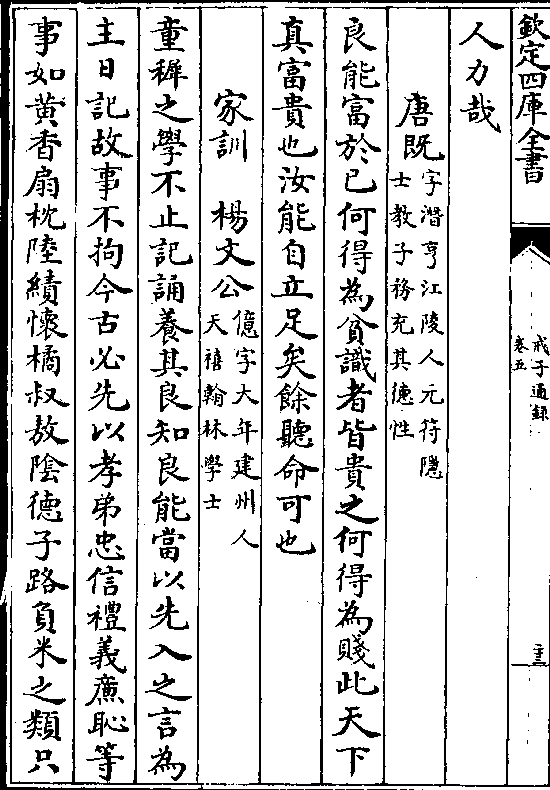 欽定四庫全書
戒子通録
卷五
二十三
人力哉
唐既
字潛亨江陵人元符隱
士教子務充其德性
良能富於已何得為貧識者皆貴之何得為賤此天下
真富貴也汝能自立足矣餘聽命可也
家訓 楊文公
億字大年建州人
天禧翰林學士
童穉之學不止記誦養其良知良能當以先入之言為
主日記故事不拘今古必先以孝弟忠信禮義廉恥等
事如黄香扇枕陸績懷橘叔敖隂德子路負米之類只